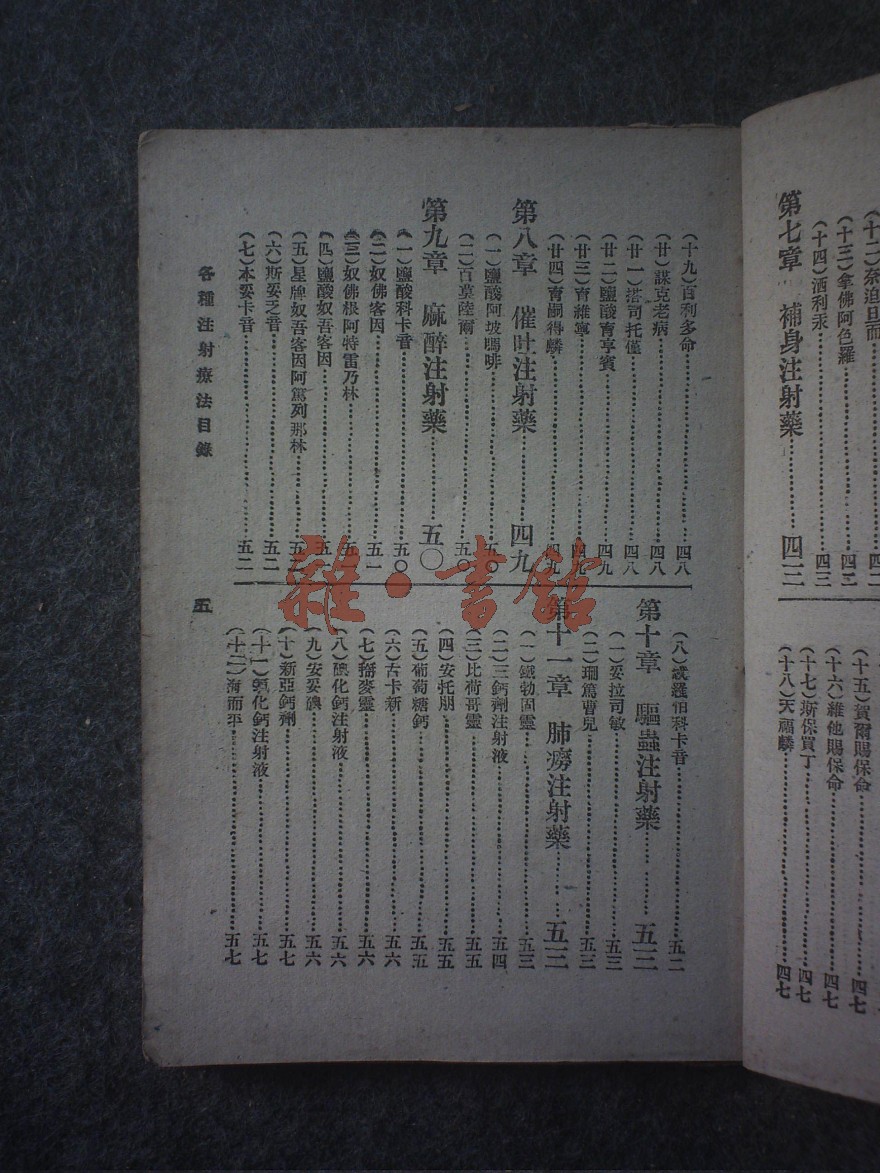 (十二)奈迫旦而……四二
(十三)拿佛阿色羅……四二
(十四)洒利汞……四三
第七章 補身注射藥……四三
(十五)賀爾賜保命……四七
(十六)維他賜保命……四七
(十七)斯保買丁……四七
(十八)天福麟……四七
(十九)百利多命……四八
(廿)謀克老病……四八
(廿一)搭司托僅……四八
(廿二)鹽酸育亨賓……四九
(廿三)育維寧……四九
(廿四)育嗣得麟……四九
第八章 催吐注射藥……四九
(一)鹽酸阿坡嗎啡……五〇
(二)百莫陸爾……五〇
第九章 麻醉注射藥……五〇
(一)鹽酸科卡音……五〇
(二)奴佛客因……五一
(三)奴佛根阿特雷乃林……五
(四)鹽酸奴吾客因……五
(五)星牌奴吾客因阿篤列那林……五
(六)斯妥乏音……五二
(七)本妥卡音……五二
各種注射療法目錄
(八)怕科卡音……五二
第十章 驅蟲注射藥……五三
(一)妥拉司敏……五三
(二)珊篤曹兒……五三
第十一章 肺癆注射藥……五三
(一)鐵勃固靈……五三
(二)三鈣劑注射液……五四
(三)比荷哥靈……五五
(四)安托朋……五五
(五)葡萄糖鈣……五五
(六)古卡新……五六
(七)麥靈……五六
(八)碘化鈣注射液……五六
(九)安妥碘……五六
(十)新亞鈣劑……五七
(十一)氯化鈣注射液……五七
(十二)海而平……五七
五
雜·書館